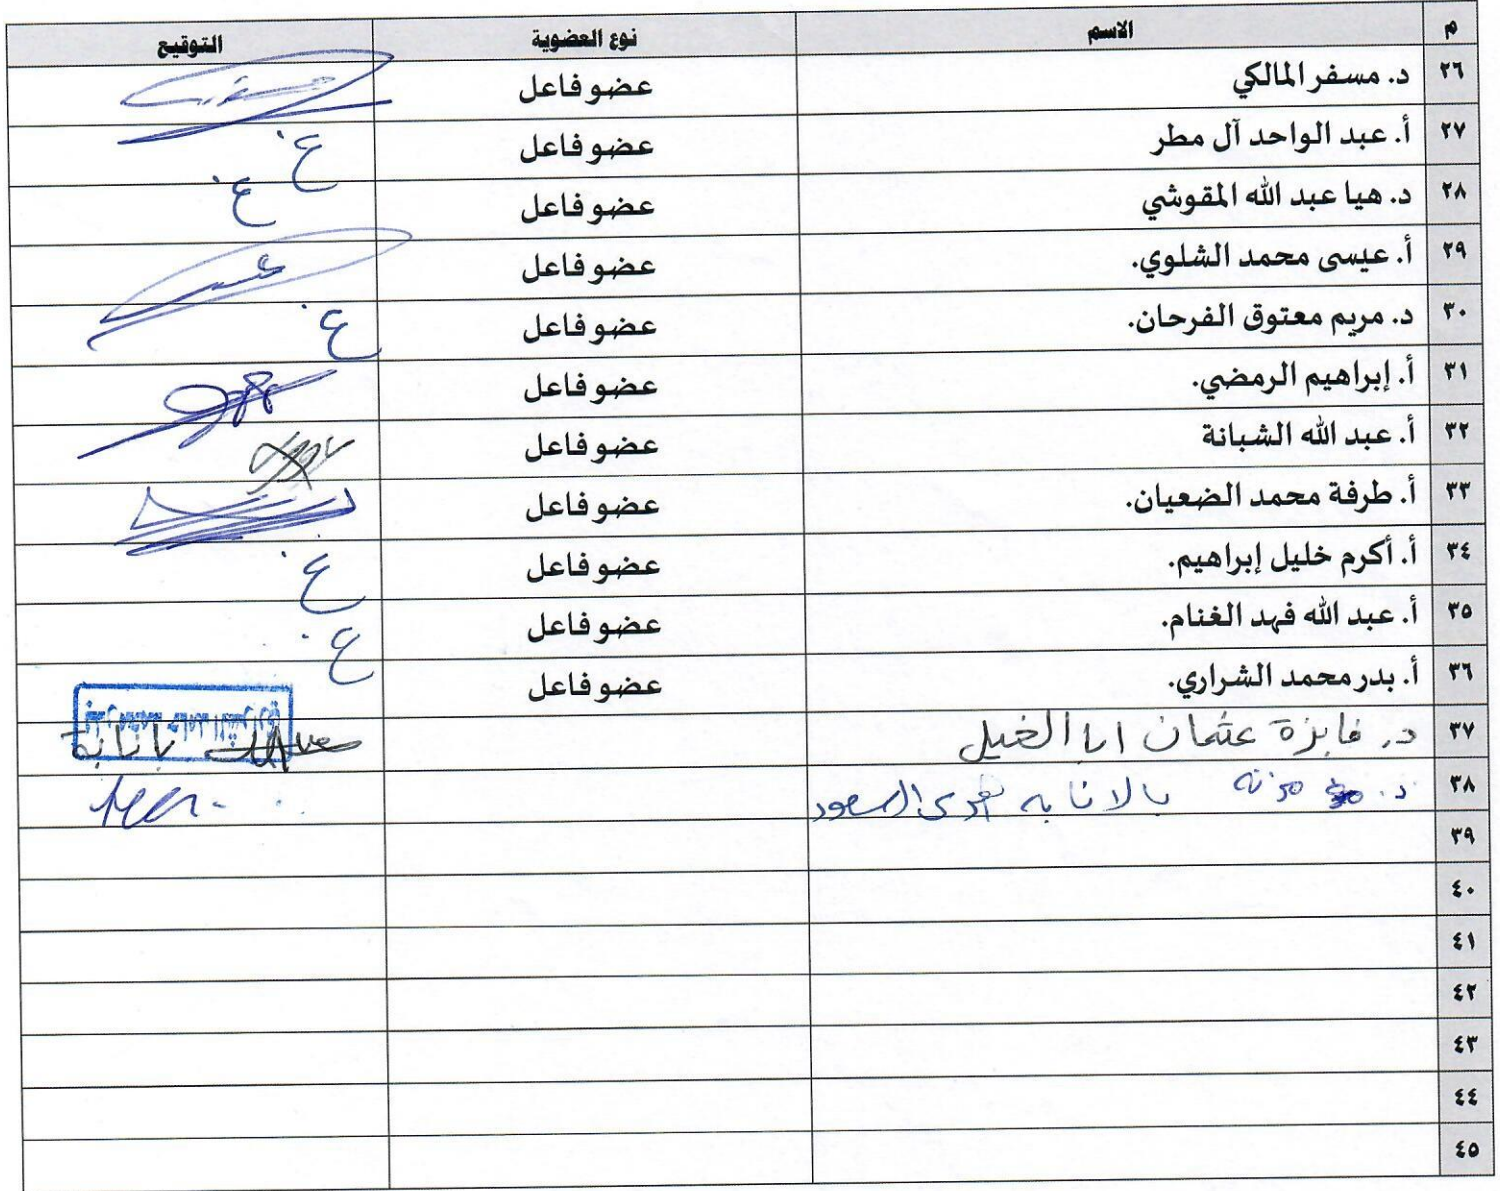 م الاسم نوع العضوية التوقيع
٢٦ د. مسفر المالكي عضو فاعل
٢٧ أ. عبد الواحد آل مطر عضو فاعل غ.
٢٨ د. هيا عبد الله المقوشي عضو فاعل غ.
٢٩ أ. عيسى محمد الشلوي. عضو فاعل
٣٠ د. مريم معتوق الفرحان. عضو فاعل غ.
٣١ أ. إبراهيم الرمضي. عضو فاعل
٣٢ أ. عبد الله الشبانة عضو فاعل
٣٣ أ. طرفة محمد الضعيان. عضو فاعل
٣٤ أ. أكرم خليل إبراهيم. عضو فاعل غ.
٣٥ أ. عبد الله فهد الغنام. عضو فاعل غ.
٣٦ أ. بدر محمد الشراري. عضو فاعل
بدر محمد حامد الشراري
٣٧ د. فايزة عثمان ابا الخيل بانابة
٣٨ د. مزنه بالانابه
٣٩
٤٠
٤١
٤٢
٤٣
٤٤
٤٥